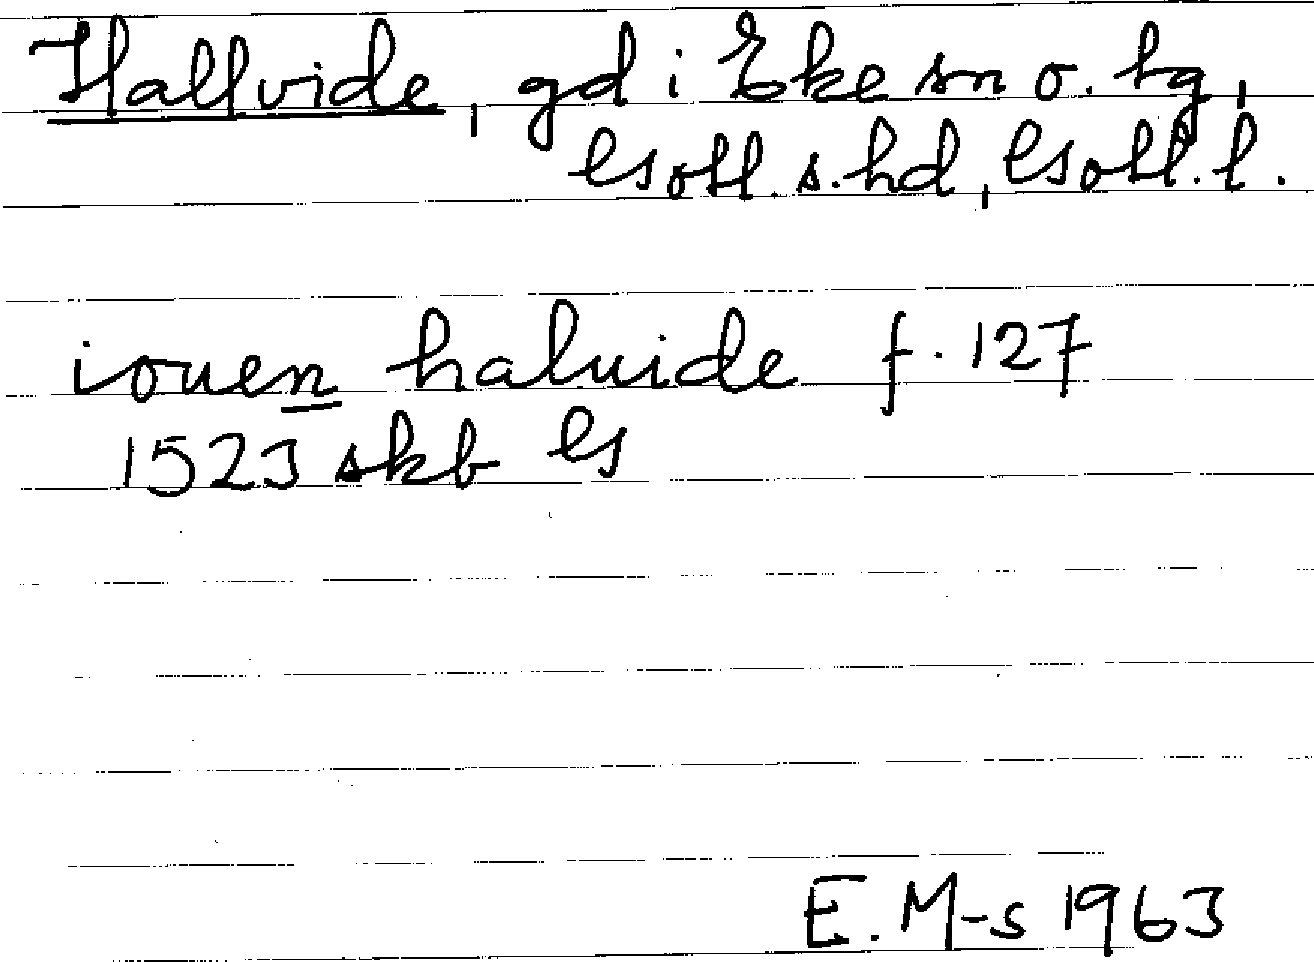 Hallvide, gd i Eke sn o. hg,
Gotl. s. hd, Gotl. l.
iouen haluide f. 127
1523 skb G
E. M-s 1963